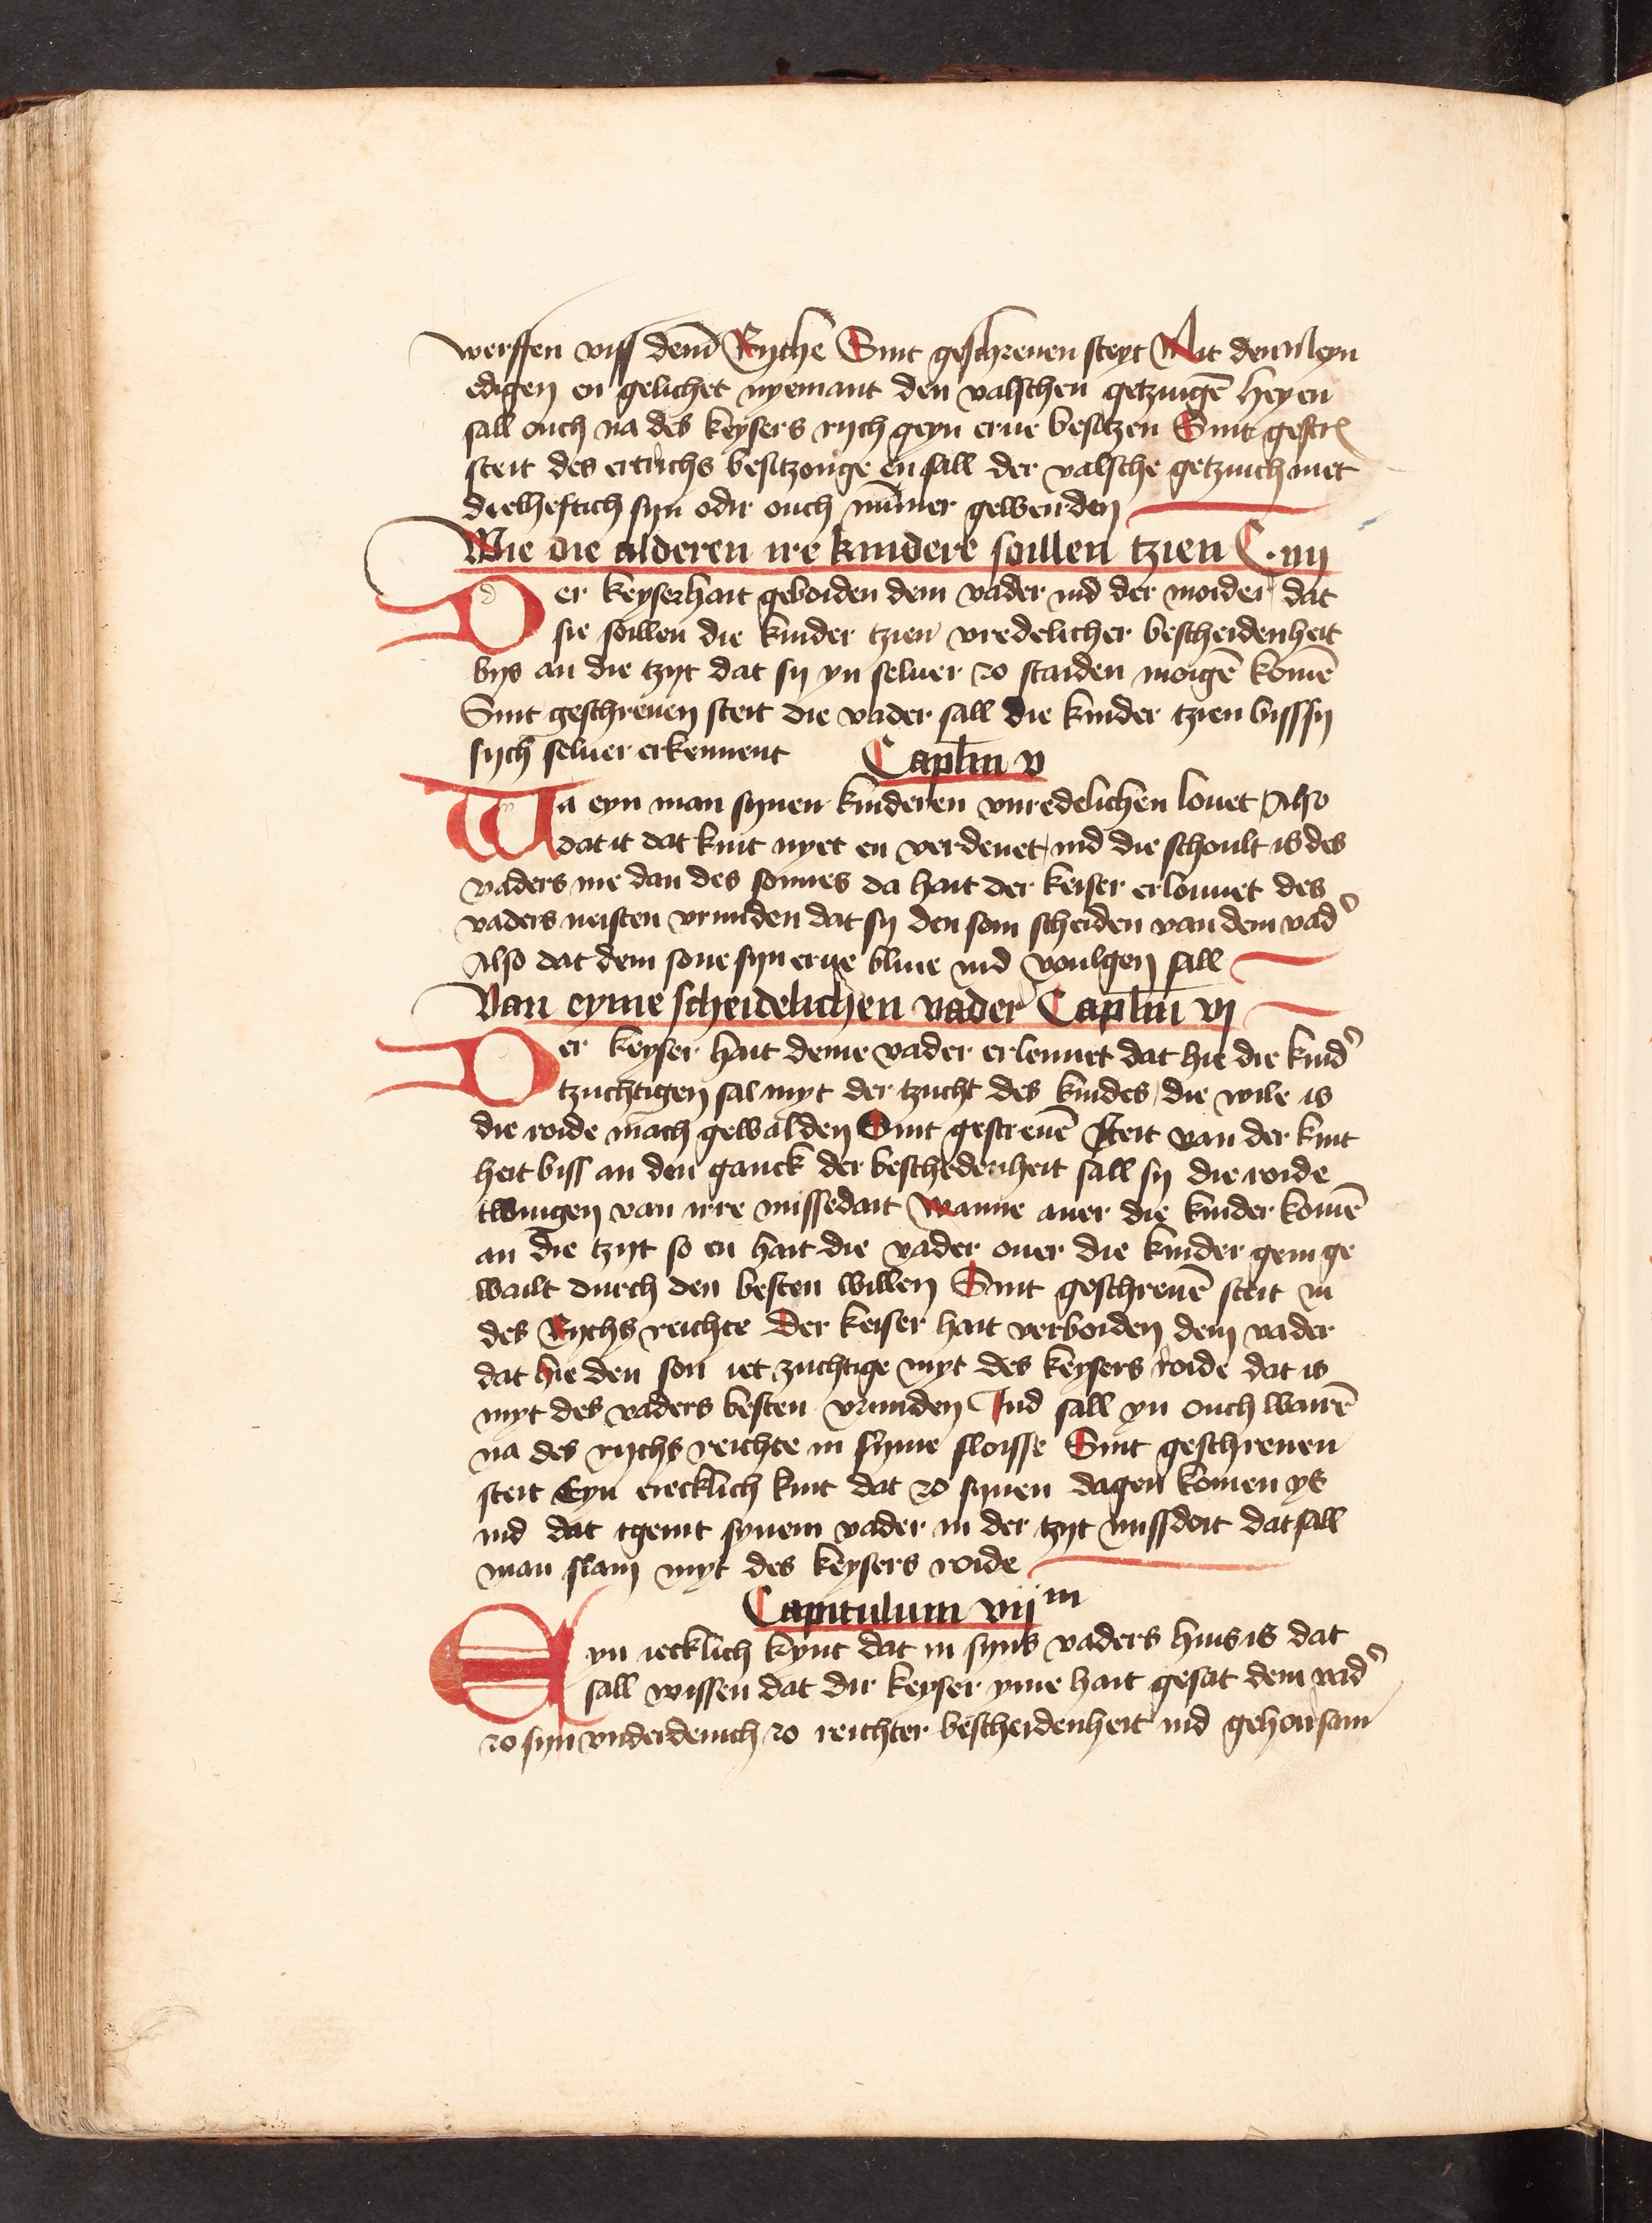 werffen viss dem̄ Ryche Sint geschreuen steyt Mit den Meyn
edigen en gelichet nyemant den valschen getzuigē hey en
sall ouch na des keysers rych geyn erue besitzen Sint gescre
steit des ertrichs besitzonge en sall der valsche getzuich niet
deelheftich syn odir ouch nūmer gewerden
Wie die alderen ire kindere soillen tzien C. iiij
Der keyser hait geboiden dem vader ind der moider dat
sie soillen die kinder tzien vredelicher bescheidenheit
bys an die tzyt dat sy yn seluer zo staiden moigē komē
Sint geschreuen steit die vader sall die kinder tzien biss sy
sych seluer erkennent Caplm v
Wa eyn man synen kinderen vnredelichen louet Also
dat it dat kint nyet en verdenet ind die schoult is des
vaders me dan des sonnes da hait der keiser erlouuet des
vaders neisten vrunden dat sy den son scheiden van dem vad'
Also dat dem sone syn erue bliue ind voulgen sall
Van eyme scheidelichen vader Caplm vj
Der keyser hait deme vader erleuuet dat hie die kind'
tzuchtigen sal myt der tzucht des kindes die wile is
die roide mach gewalden Sint gescreuē steit van der kint
heit biss an den ganck der beschedenheit sall sy die roide
twingen van irre missedait wanne auer die kinder komē
an die tzyt so en hait die vader ouer die kinder gein ge
wailt durch den besten willen Sint geschreuē steit in
des Rychs reichte Der keiser hait verboiden dem vader
dat hie den son iet zuchtige myt des keysers roide dat is
myt des vaders besten vrunden Ind sall yn ouch wairē
na des rychs reichte in syme sloisse Sint geschreuen
steit Eyn iecklich kint dat zo synen dagen komen ys
ind dat tgeint synem vader in der tzyt missdoit dat sall
man slain myt des keysers roide
Capitulum vij m
Eyn iecklich kynt dat in syns vaders huis is dat
sall wissen dat dir keyser yme hait gesat dem vad'
zo syn vnderdenich zo reichter bescheidenheit ind gehoirsam